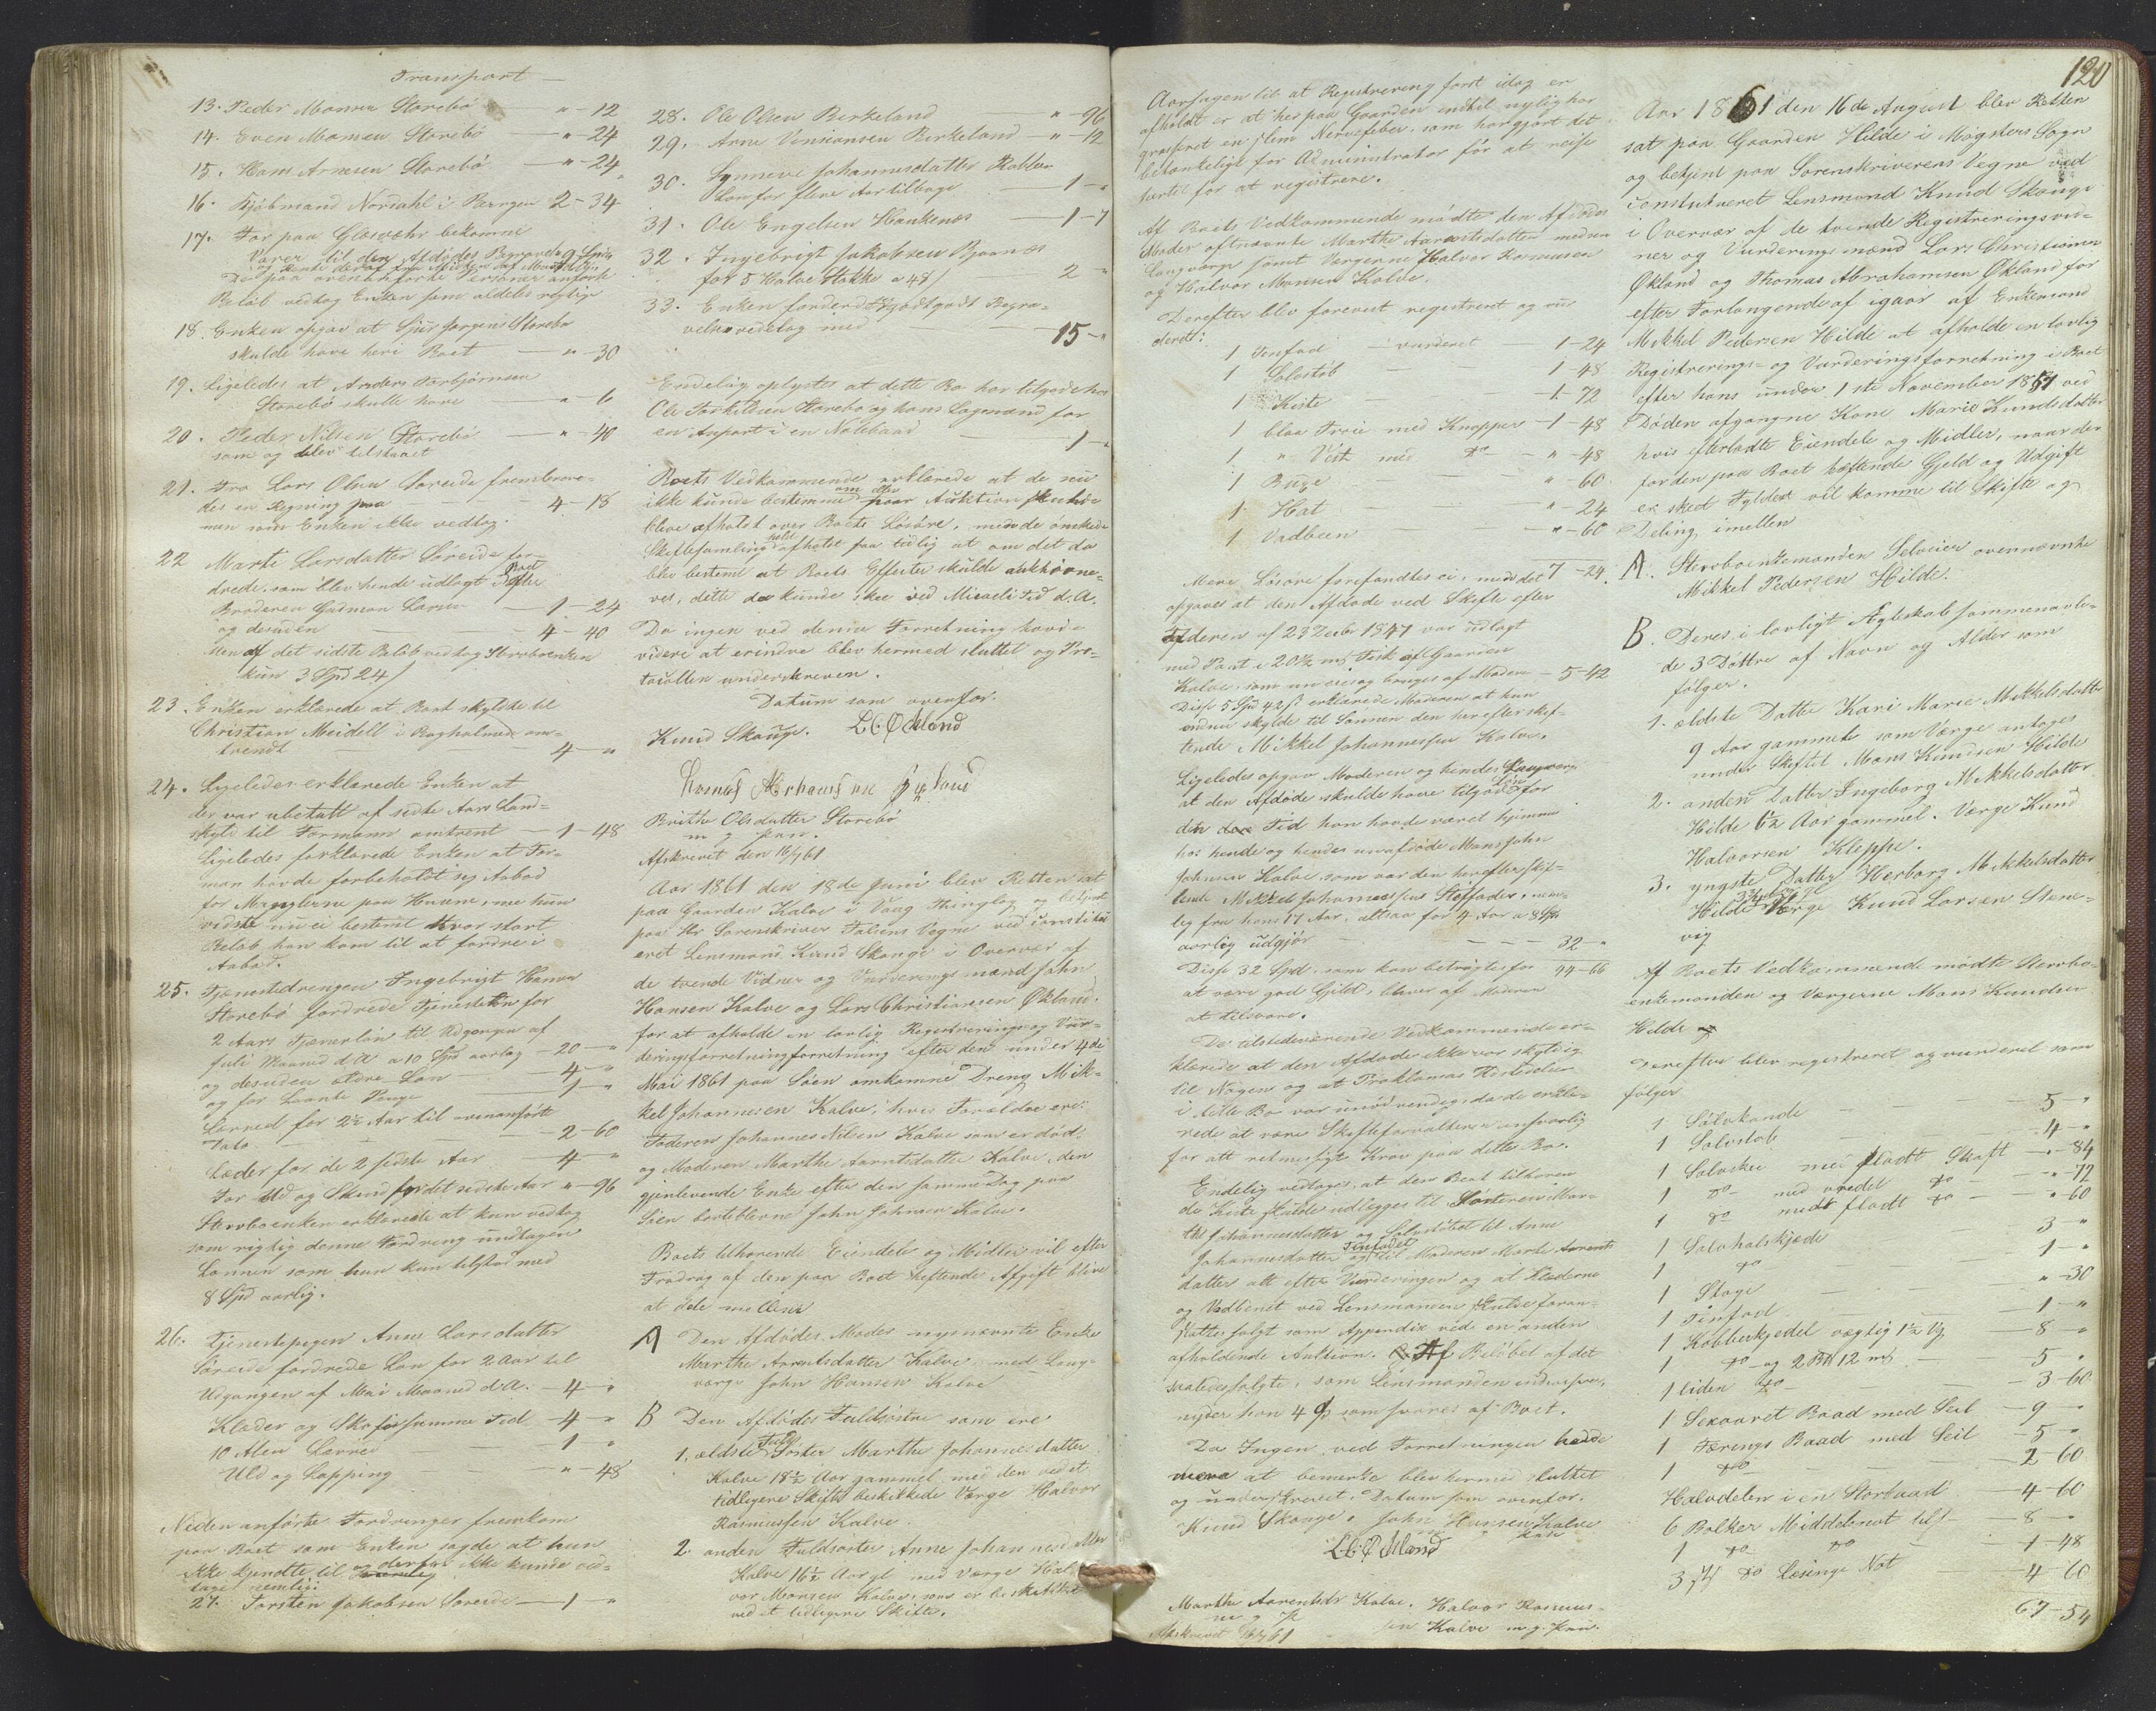 Transport —
13. Peder Monsen Storebø — " - 12
14. Even Monsen Storebø — " - 24
15. Hans Arnesen Storebø — " - 24
16. Kjøbmand Nordahl i Bergen 2 - 34
17. For paa Glesvæhr bekomne
Varer til den Afdødes Begravelse
Beløb vedtog Enken som aldeles rigtige
18. Enken opgav at Sjur Jørgens Storebø
skulde have heri Boet — " - 30
19. Ligeledes at Anders Torbjørnsen
Storebø skulle have — " - 6
20. Peder Nilsen Storebø — " - 40
som og blev tilstaaet
21. Fra Lars Olsen Søreide frembrag-
des en Regning paa — 4 - 18
men som Enken ikke vedtog.
22 Marte Larsdatter Søreide for-
drede, som blev hende udlagt i Boet efter
Broderen Gudmon Larsen — 1 - 24
og desuden — 4 - 40
men af det sidste Beløb vedtog Sterboenken
kun 3 Spd 24 ſ
23. Enken erklærede at Boet skyldte til
Christian Meidell i Bagholmen om-
trendt — 4 - "
24. Ligeledes erklærede Enken at
der var ubetalt af sidste Aars Land-
skyld til Formann omtrent — 1 - 48
Ligeledes forklarede Enken at For-
man havde forbeholdt sig Aabod
for Manglerne paa Husene, me hun
vidste nu ei bestemt hvor stort
Beløb han kom til at fordre i
Aabod.
25. Tjenestedrengen Ingebrigt Hansen
Storebø fordrede Tjenesteløn for
2 Aars Tjenerløn til Udgangen af
Juli Maaned d.A. a 10 Spd aarlag — 20 - "
og desuden ældre Løn — 4 - "
og for Laante Penge — 1 - "
Lerred for 2½ Aar til ovenanførte
Dato — 2 - 60
Læder for de 2 sidste Aar — 4 - "
For Uld og Skind for det sidste Aar " - 96
Sterboenken erklærede at hun vedtog
som rigtig denne Fordring undtagen
Lønnen som hun kun tilstod med
8 Spd aarlig.
26. Tjenestepigen Anne Larsdatter
Søreide fordrede Løn for 2 Aar til
Udgangen af Mai Maaned d.A. — 4 - "
Klæder og Sko for samme Tid — 4 - "
10 Alen Lerred — 1 - "
Uld og Lapping — " - 48
Nedenanførte Fordringer fremkom
paa Boet som Enken sagde at hun
ikke kjendte til og derfor ikke kunde ved-
tage nemlig:
27. Torsten Jakobsen Søreide — 1 - "
28. Ole Olsen Birkeland — " - 96
29. Arne Vinsiansen Birkeland " - 12
30. Synneve Johannesdatter Rabben
Løn for flere Aar tilbage — 1 - "
31. Ole Engelsen Haukenæs — 1 - 7
32. Ingebrigt Jakobsen Bjørnæs
for 5 Halve Stokke a 48 ſ — 2 "
33. Enken fordrede godtgjort Begra-
velse vedtog med — 15 - "
Endelig oplystes at dette Bo har tilgode hos
Ole Torkildsen Storebø og hans Lagsmænd for
en Anpart i en Notebaad — 1 - "
Boets Vedkommende erklærede at de nu
ikke kunde bestemme om eller naar Auktion skulde
blive afholdt over Boets Løsøre, men de ønskede
Skiftesamling holdt afholdt saa tidlig at om det da
blev bestemt at Boets Effecter skulde auktione-
res, dette da kunde skee ved Micaeli Tid d.A.
Da ingen ved denne Forretning havde
videre at erindre blev hermed sluttet og Pro-
tocollen underskreven.
Datum som ovenfor.
Knud Skauge. L C Økland
Thomas Abrahamsen Økland
Brithe Olsdatter Storebø
m. g. pen.
Afskrevet den 16/7 61
Aar 1861 den 18de Juni blev Retten sat
paa Gaarden Kalve i Vaag Thinglag og betjent
paa Hr Sorenskriver Falsens Vegne ved constitu-
eret Lensmand Knud Skauge i Overvær af
de tvende Vidner og Vurderingsmænd John
Hansen Kalve og Lars Christiansen Økland,
for at afholde en lovlig Registrerings og Vur-
deringsforretningforretning efter den under 4de
Mai 1861 paa Søen omkomne Dreng Mik-
kel Johannesen Kalve, hvis Forældre ere:
Faderen Johannes Nilsen Kalve som er død,
og Moderen Marthe Aarntsdatter Kalve, den
gjenlevende Enke efter den samme Dag paa
Søen bortblevne John Johnsen Kalve.
Boets tilhørende Eiendele og Midler vil efter
Fradrag af den paa Boet heftende Afgift blive
at dele mellem
A Den Afdødes Moder nysnævnte Enke
Marthe Aarntsdatter Kalve, med Laug-
værge John Hansen Kalve
B Den Afdødes Fuldsøstre som ere
1, ældste Fuld Søster Marthe Johannesdatter
Kalve 18½ Aar gammel, med den ved et
tidligere Skifte beskikkede Værge Halvor
Rasmussen Kalve.
2. anden Fuldsøster Anne Johannesdatter
Kalve 16½ Aar gl. med Værge Hal-
vor Monsen Kalve, som er beskikket
ved et tidligere Skifte.
Aarsagen til at Registrering først idag er
afholdt er at her paa Gaarden indtil nylig har
grasseret en slem Nervefeber, som har gjort det
betænkeligt for Administrator før at reise
hertil for at registrere.
Af Boets Vedkommende mødte den Afdødes
Moder oftnævnte Marthe Aarentsdatter med sin
Laugværge samt Værgerne Halvor Rasmussen
og Halvor Monsen Kalve.
Derefter blev forevist registreret og vur-
deret:
1 Tinfad — vurderet — 1 - 24
1 Sølvstøb — 1 - 48
1 Kiste — 1 - 72
1 blaa Trøie med Knapper — 1 - 48
1 " Vest med do — " - 48
1 Buxe — " - 60
1 Hat — " - 24
1 Vadbeen — " - 60
Mere Løsøre forefandtes ei, med det 7 - 24.
opgaves at den Afdøde ved Skifte efter
Faderen af 23 Decbr 1847 var udlagt
med Part i 20½ m͞ Fisk af Gaarden
Kalve, som nu eies og bruges af Moderen — 5 - 42
Disse 5 Spd 42 ſ erklærede Moderen at hun
endnu skylde til Sønnen den herefter skif-
tende Mikkel Johannessen Kalve.
Ligeledes opgav Moderen og hendes Laugværge
at den Afdøde skulde have tilgode Løn for
den Tid han havde været hjemme
hos hende og hendes nu afdøde Mand John
Johnsen Kalve, som var den herefter skif-
tende Mikkel Johannessens Stiffader, nem-
lig fra hans 17 Aar, altsaa for 4 Aar a 8 Spd
aarlig udgjør — 32 - "
Disse 32 Spd. som kan betragtes for 44 - 66
at være god Gjeld, bliver af Moderen
at tilsvare.
De tilstedeværende Vedkommende er-
klærede at den Afdøde ikke var skyldig
til Nogen og at Proklamas Udstedelse
i dette Bo var unødvendig, da de erklæ-
rede at være Skifteforvalteren ansvarlig
for alt retmessigt Krav paa dette Bo.
Endelig vedtoges, at den Boet tilhøren
de Kiste skulde udlægges til Søsteren Mar-
the Johannesdatter og Sølvstøbet til Anne
Johannesdatter og Tinfadet til Moderen Marte Aarents
datter alt efter Vurderingen og at Klæderne
og Vadbenet ved Lensmanden skulde foran-
staltes solgt som Appendix ved en anden
afholdende Auktion. Af Beløbet af det
saaledes solgte, som Lensmanden indcasserer,
nyder han 4 % som svares af Boet.
Da Ingen ved Forretningen hadde
mere at bemærke blev hermed sluttet
og underskrevet. Datum som ovenfor.
Knud Skauge. John Hansen Kalve
L C Økland
Marthe Aarentsdr Kalve. Halvor Rasmus-
sen Kalve m. g. Pen.
Afskrevet 16/7 61
120
Aar 1861 den 16de August blev Retten
sat paa Gaarden Hilde i Møgsters Sogn
og betjent paa Sorenskriverens Vegne ved
constitueret Lensmand Knud Skauge
i Overvær af de tvende Registreringsvid-
ner og Vurderingsmænd Lars Christiansen
Økland og Thomas Abrahamsen Økland for
efter Forlangende af igaar af Enkemand
Mikkel Pedersen Hilde at afholde en lovlig
Registrerings- og Vurderingsforretning i Boet
efter hans under 1ste November 1857 ved
Døden afgangne Kone Marie Knudsdatter
hvis efterladte Eiendele og Midler, naar der
for den paa Boet heftende Gjeld og Udgift
er skeet Fyldest vil komme til Skifte og
Deling imellem
A. Sterboenkemanden Selveier ovennævnte
Mikkel Pedersen Hilde.
B. Deres i lovligt Ægteskab sammenavle-
de 3 Døttre af Navn og Alder som
følger.
1. ældste Datter Kari Marie Mikkelsdatter
9 Aar gammel som Værge antages
under Skiftet Mons Knudsen Hilde
2. anden Datter Ingeborg Mikkelsdatter
Hilde 6½ Aar gammel. Værge Knud
Halvorsen Kleppe.
3. yngste Datter Herborg Mikkelsdatter
Hilde Værge Knud Larsen Stene-
vig
Af Boets Vedkommende mødte Sterbo-
enkemanden og Værgerne Mons Knudsen
Hilde
Derefter blev registreret og vurderet som
følger
1 Sølvkande — 5 - "
1 Sølvstøb — 4 - "
1 Sølvskee med fladt Skaft — " - 84
1 do med vredet do — " - 72
1 do medt fladt do — " - 60
1 Sølvhalskjæde — 3 - "
1 do — 1 - "
1 Stage — " - 30
1 Tinfad — 1 - "
1 Kobberkjedel vægtig 1½ Vg — 8 - "
1 do og 2 B℔ 12 m͞ — 5 - "
1 liden do — 3 - 60
1 Sexaaret Baad med Seil — 9 - "
1 Færings Baad med Seil — 5 - "
1 do — 2 - 60
Halvdelen i en Storbaad — 4 - 60
6 Bolker Middelsnot — 8 - "
1 do do — 1 - 48
3 do Løsinge Not — 4 - 60
67 - 54